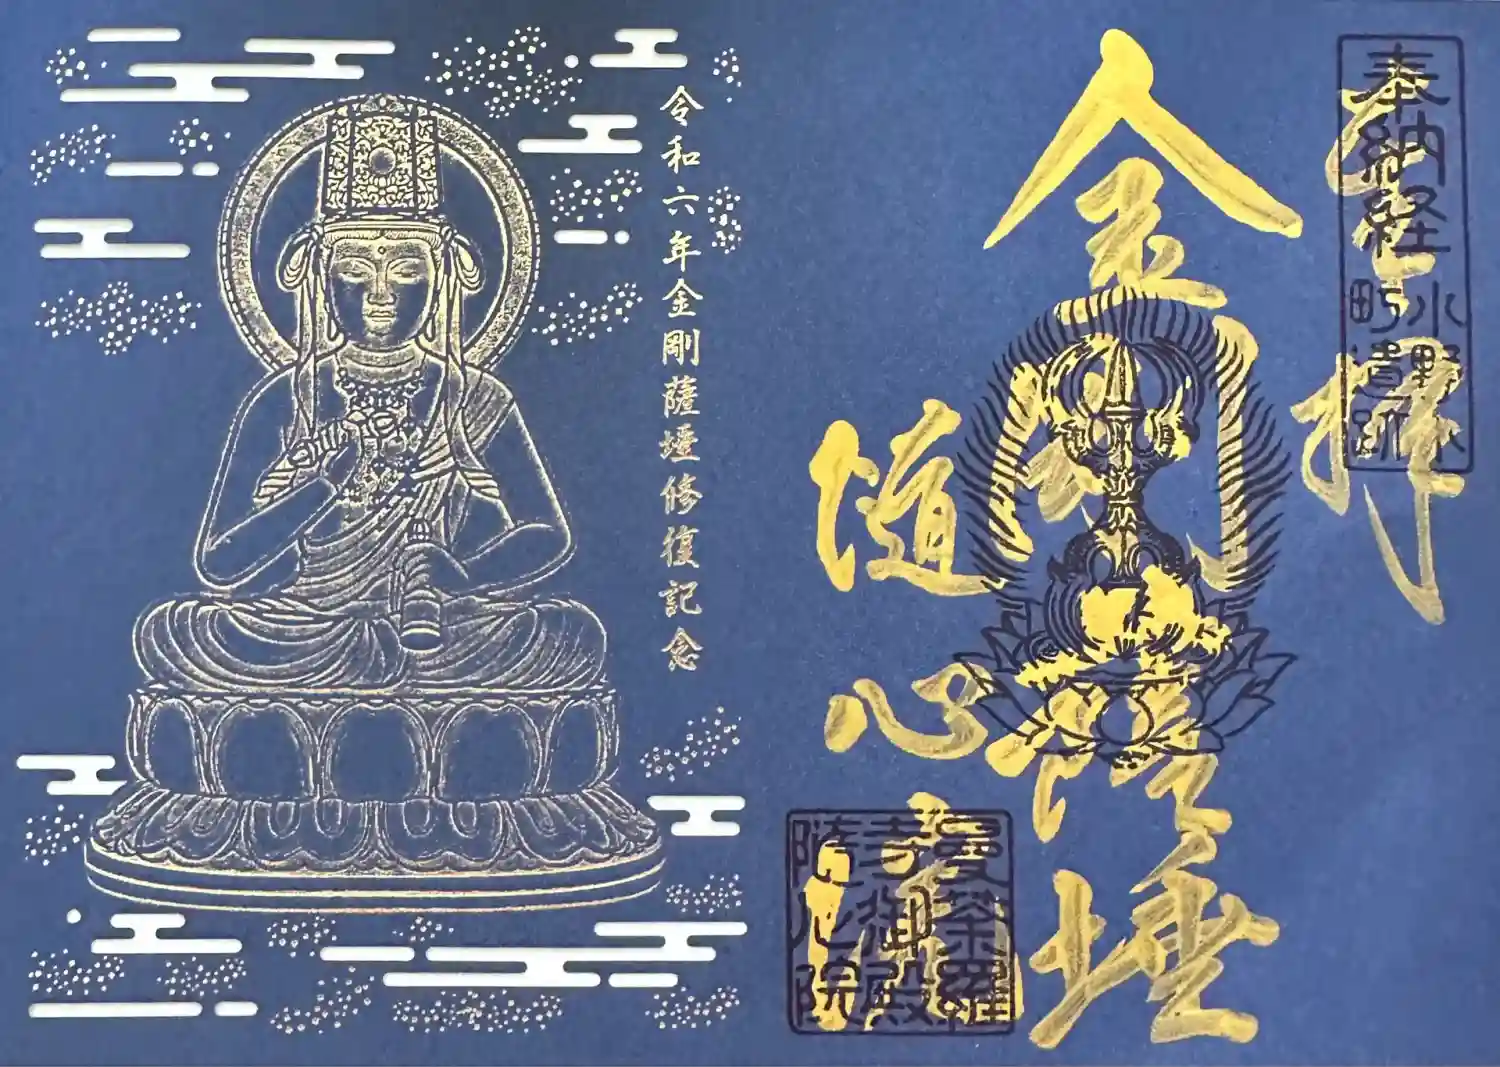 奉拝
奉納経
小野小
町遺跡
金剛薩埵
随心院
曼荼羅
寺御殿
随心院
令和六年金剛薩埵修復記念